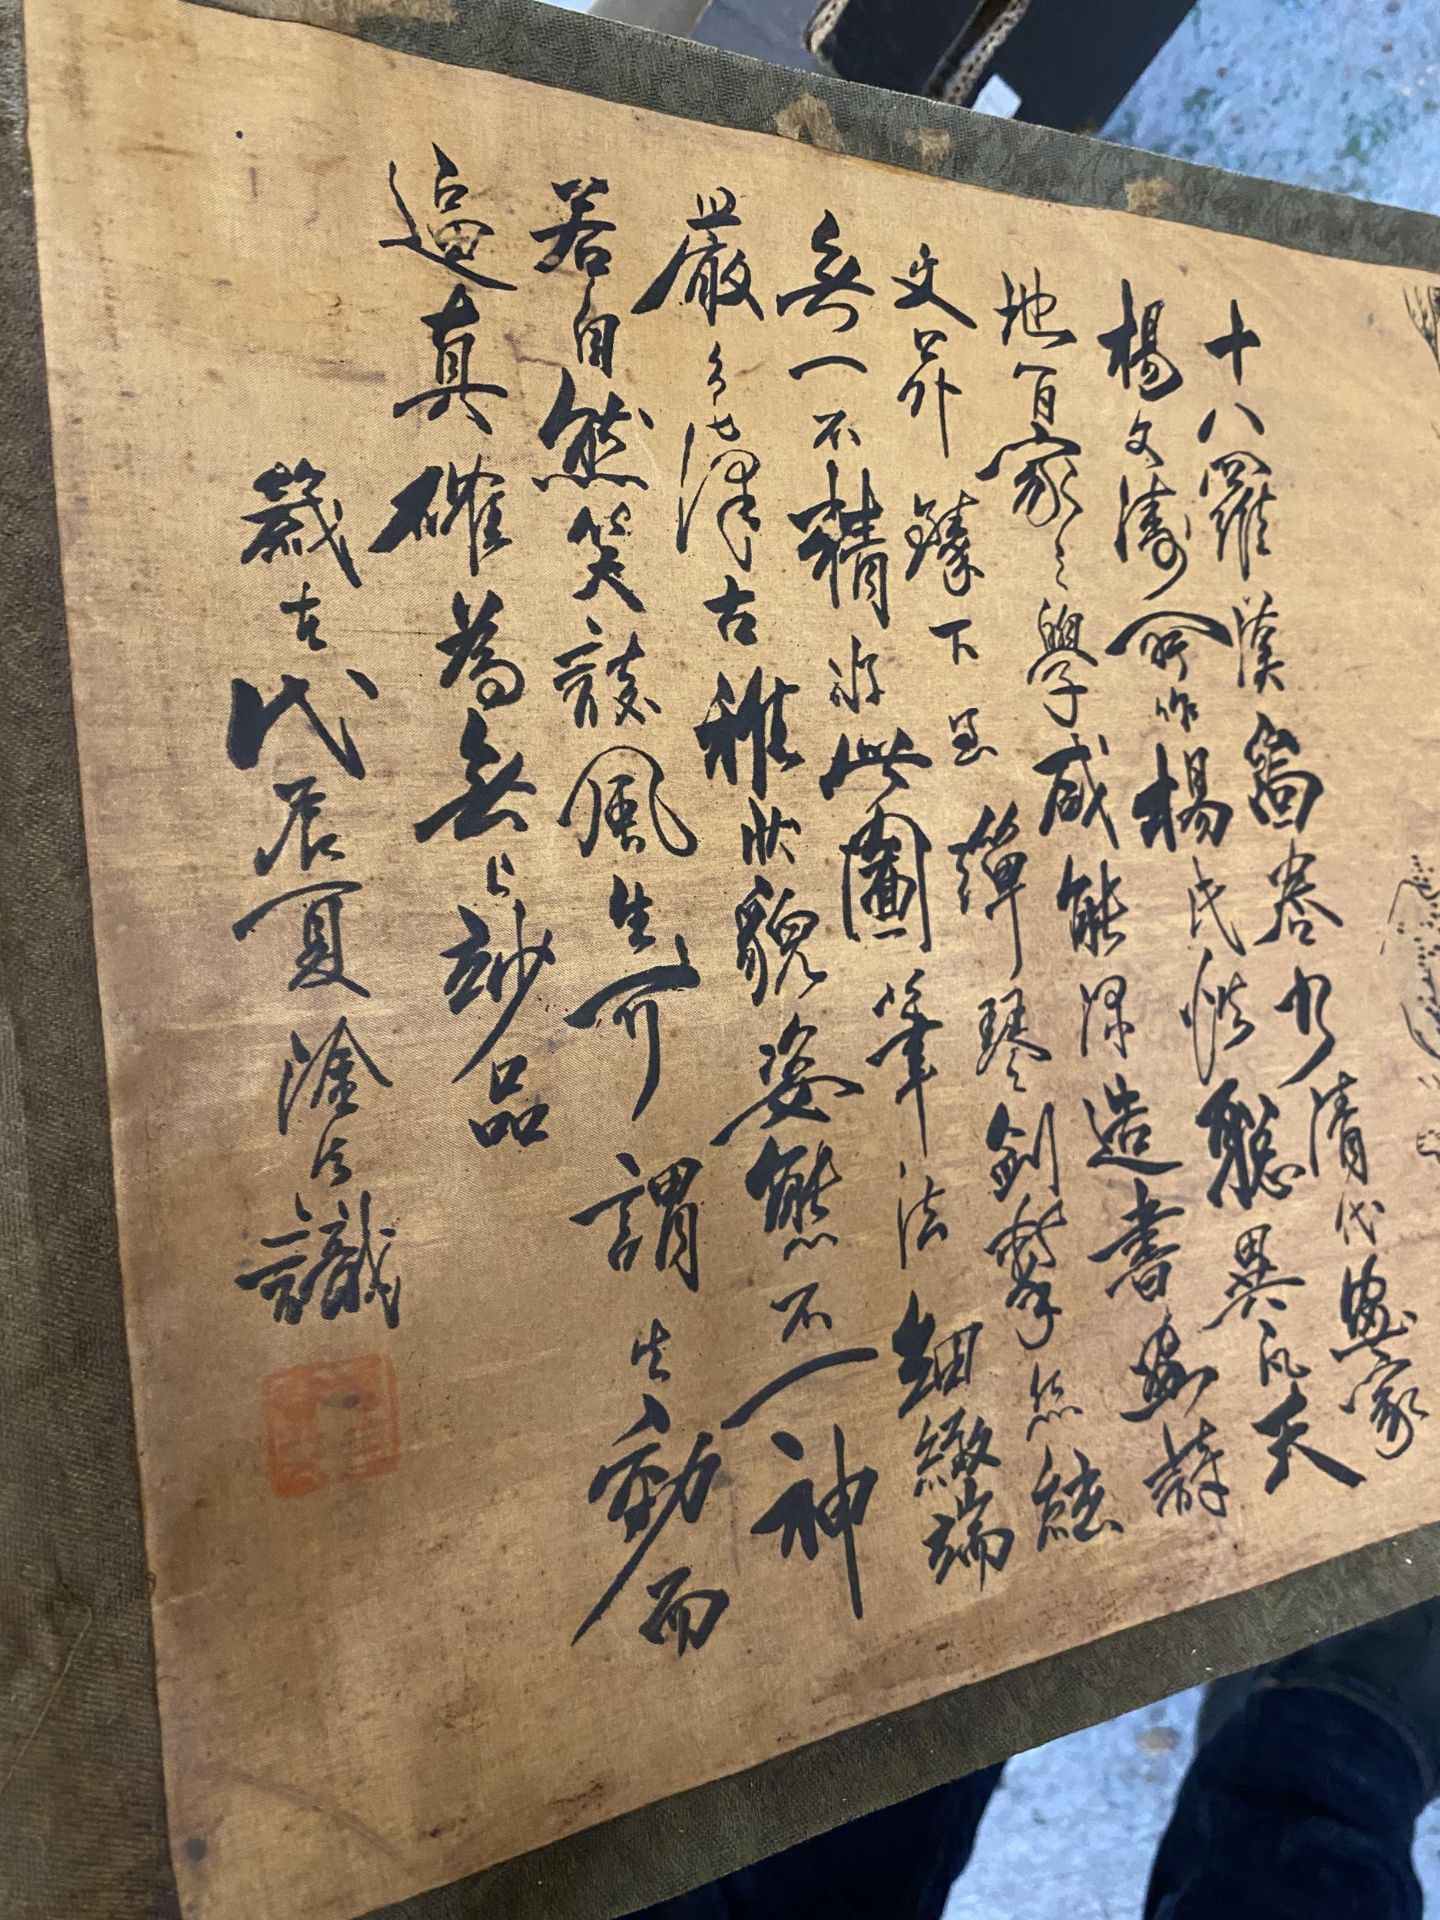 十八羅漢圖卷乃清代畫家
楊文濤所作楊氏聰異凡夫
地百家之學咸能深造書畫詩
文 臻下 彈琴劍擊 
無一不精 此圖筆法細緻端
嚴 古雅狀貌姿態不一神
若自然笑談風生可謂生動而
逼真確為無上妙品
歲在 夏 識